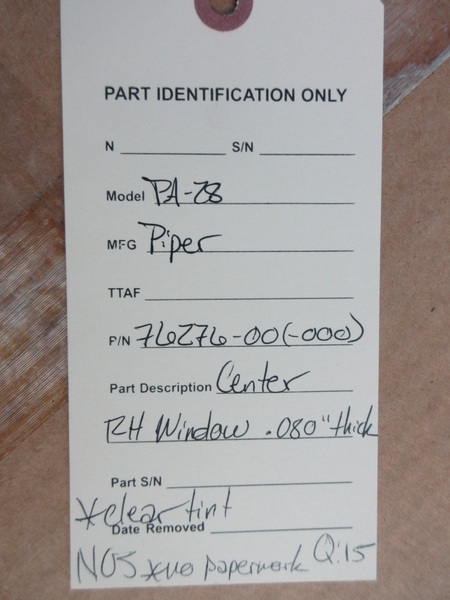 PART IDENTIFICATION ONLY
N S/N
Model PA-28
MFG Piper
TTAF
P/N 76276-00(-000)
Part Description Center
RH Window .080" thick
Part S/N
*clear tint
Date Removed
NOS *no paperwork Q:15